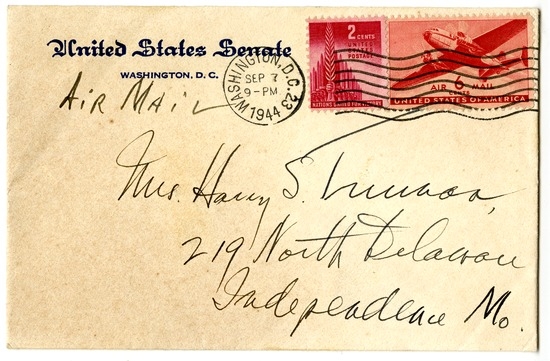 United States Senate
WASHINGTON, D. C.
AIR MAIL
WASHINGTON, D.C. 23
SEP 7
9-PM
1944
2 CENTS
UNITED STATES
POSTAGE
NATIONS UNITED FOR VICTORY
6
CENTS
AIR MAIL
UNITED STATES OF AMERICA
Mrs. Harry S. Truman,
219 North Delaware
Independence Mo.